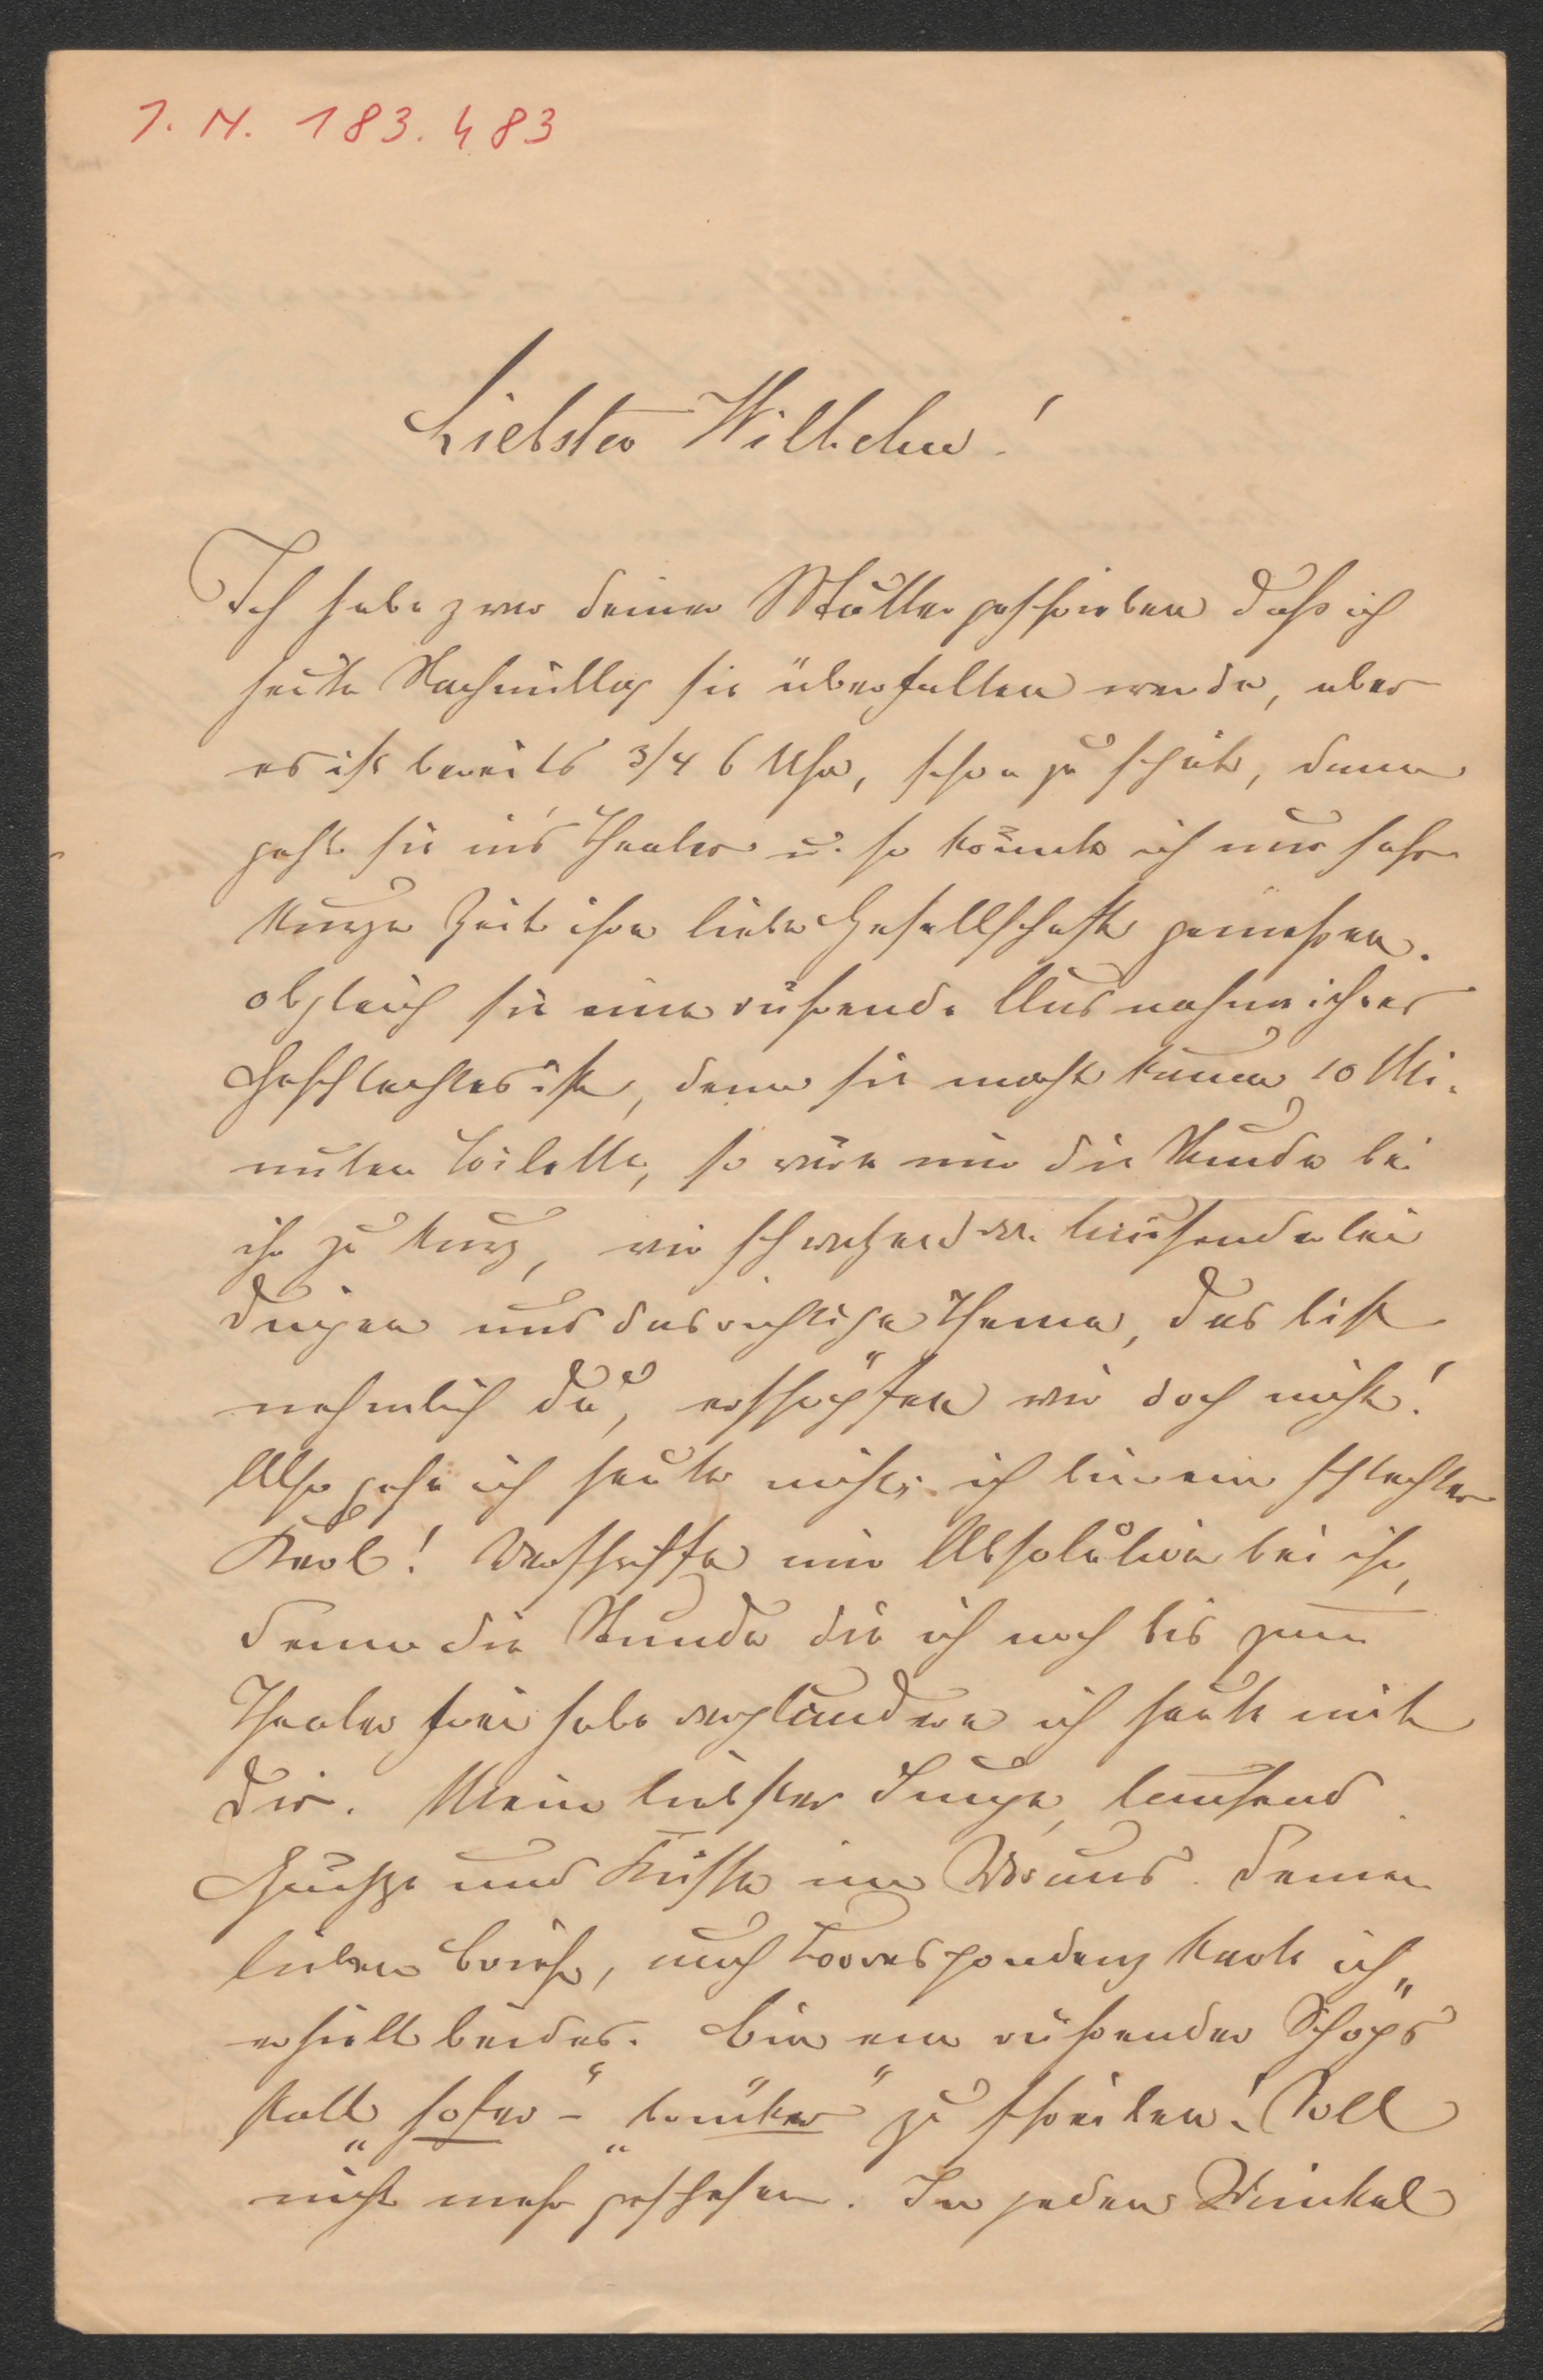 I. N. 183.483
Liebster Wilhelm!
Ich habe zwar deiner Mutter geschrieben daß ich
heute Nachmittag sie überfallen werde, aber
es ist bereits 3/4 6 Uhr, schon zu spät, dann
geht sie in's Theater u. so könnte ich nur sehr
kurze Zeit ihre liebe Gesellschaft genießen.
obgleich sie eine rührende Ausnahme ihres
Geschlechtes ist, denn sie macht kaum 10 Mi-
nuten Toilette, so wäre mir die Stunde bei
ihr zu kurz, wir schwatzen von tausenderlei
Dingen und das richtige Thema, das bist
nehmlich du, erschöpfen wir doch nicht!
Also gehe ich heute nicht; ich bin ein schlechter
Kerl! Verschaffe mir Absolution bei ihr,
denn die Stunde die ich noch bis zum
Theater frei habe verplaudere ich heute mit
dir. Mein liebster Junge, tausend
Grüße und Küsse im Voraus. Deinen
lieben Brief, auch Correspondenz Karte ich
erhielt beides. Bin ein rührender Schöps
statt "hofer" - "brücker" zu schreiben! Soll
nicht mehr geschehen. In jedem Winkel